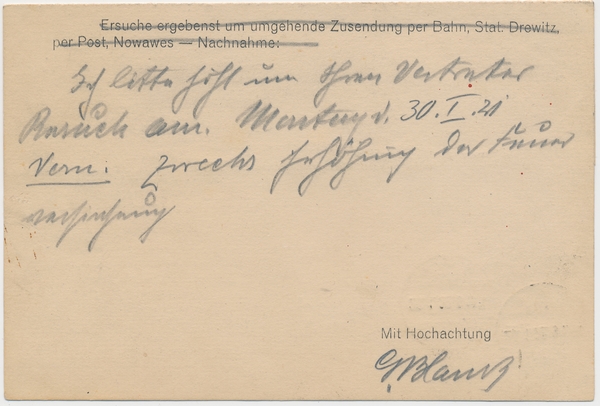 Ersuche ergebenst um umgehende Zusendung per Bahn, Stat. Drewitz,
per Post, Nowawes — Nachnahme:
Ich bitte höfl um Ihren Vertreter
Besuch am. Montag d. 30.I.21
Vorm. zwecks Erhöhung der Feuer
versicherung
Mit Hochachtung